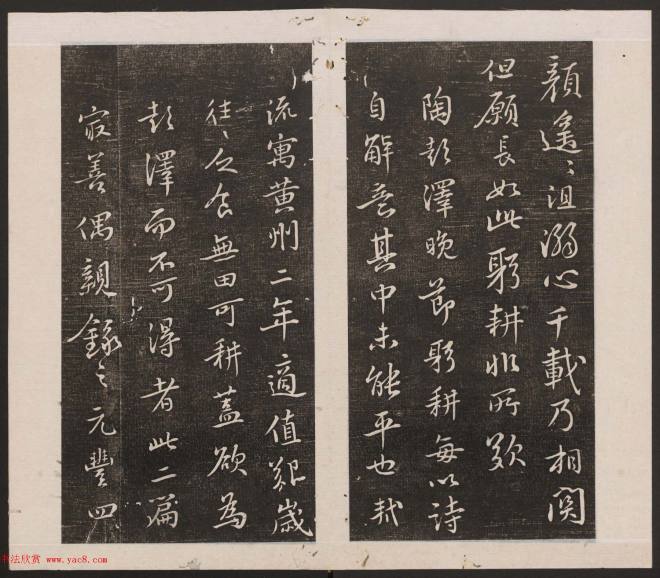 顔遙〻沮溺心千載乃相関
但願長如此躬耕非所歎
陶彭澤晚節躬耕每以詩
自解意其中未能平也軾
流寓黃州二年適值艱歲
往〻乏食無田可耕蓋欲為
彭澤而不可得者此二篇
寂善偶親錄之元豐四
书法欣赏 www.yac8.com